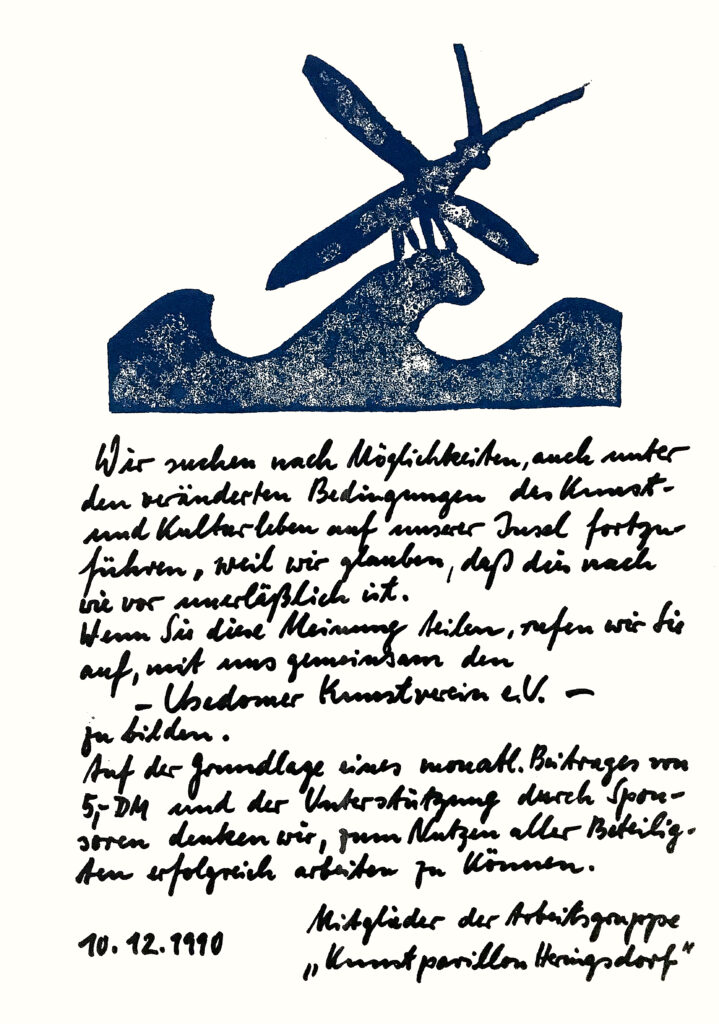 Wir suchen nach Möglichkeiten, auch unter
den veränderten Bedingungen das Kunst-
und Kulturleben auf unserer Insel fortzu-
führen, weil wir glauben, daß dies nach
wie vor unerläßlich ist.
Wenn Sie diese Meinung teilen, rufen wir Sie
auf, mit uns gemeinsam den
– Usedomer Kunstverein e.V. –
zu bilden.
Auf der Grundlage eines monatl. Beitrages von
5,- DM und der Unterstützung durch Spon-
soren denken wir, zum Nutzen aller Beteilig-
ten erfolgreich arbeiten zu können.
Mitglieder der Arbeitsgruppe
10.12.1990 „Kunstpavillon Heringsdorf"